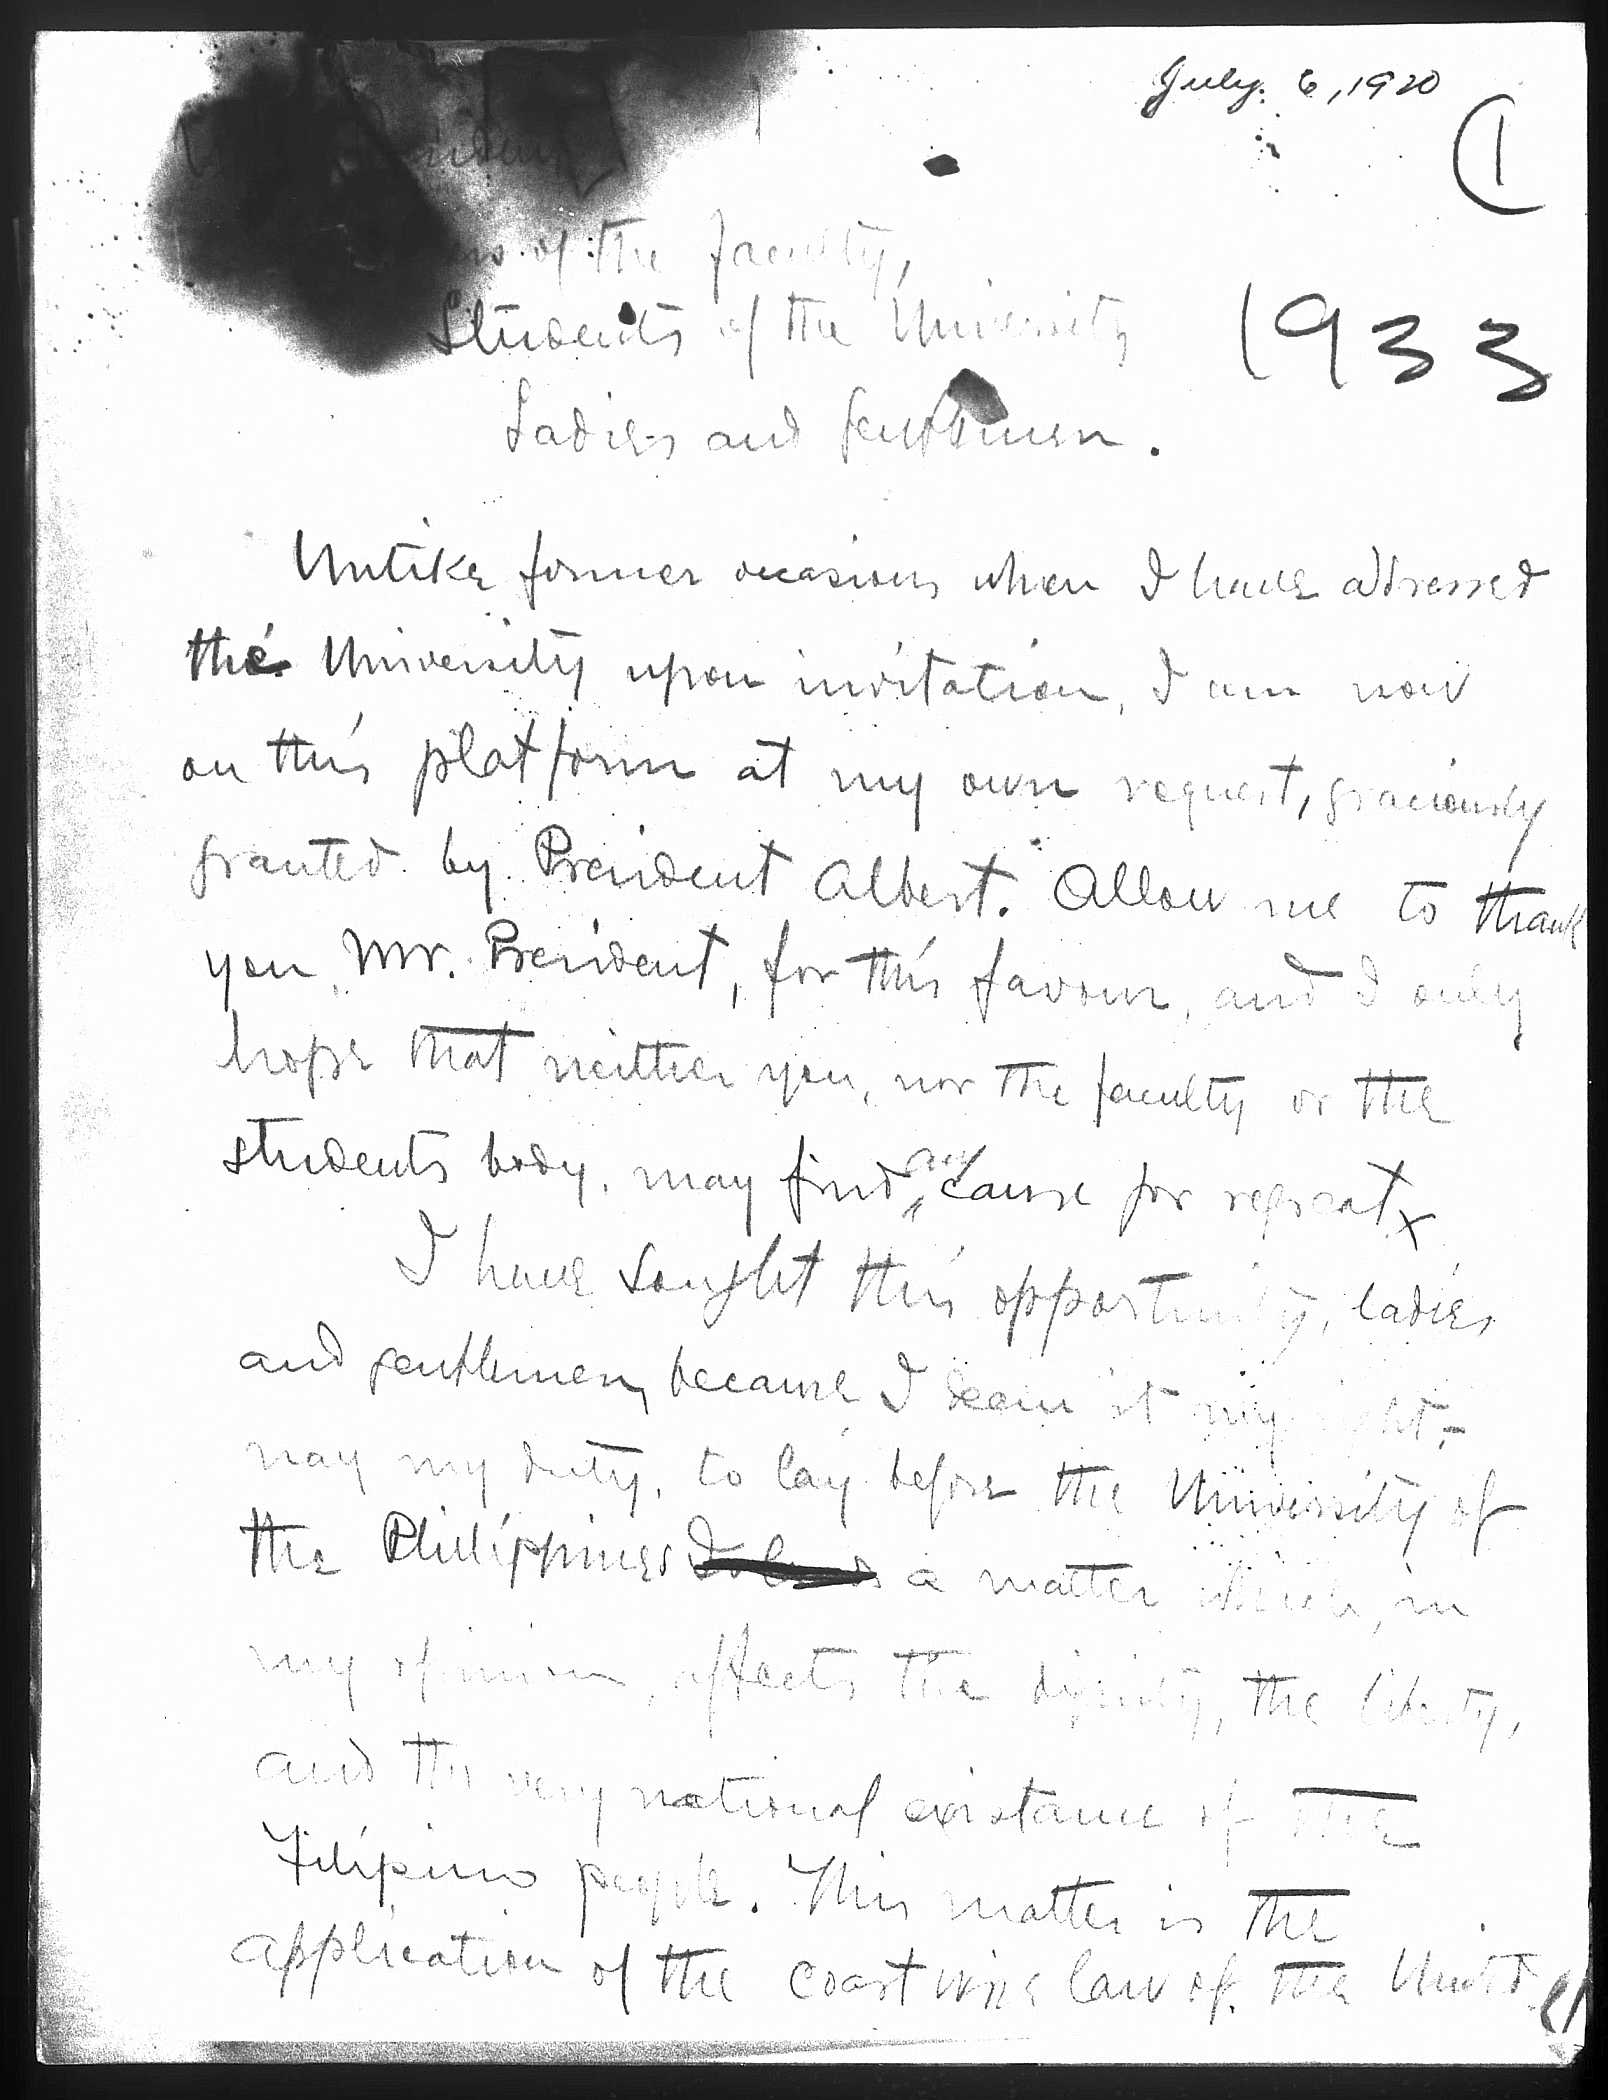 July. 6, 1920
1
President
of the faculty,
Students of the University
1933
Ladies and Gentlemen.
Unlike former occasions when I have addressed
the University upon invitation, I am now
on this platform at my own request, graciously
granted by President Albert. Allow me to thank
you, Mr. President, for this favour, and I only
hope that neither you, nor the faculty or the
students body, may find any cause for regreat
I have sought this opportunity, ladies
and gentlemen, because I deem it my right,-
nay my duty, to lay before the University of
the Philippines a matter which, in
my opinion, affects the dignity, the liberty,
and the very national existance of the
Filipino people. This matter is the
application of the coastwise law of the United